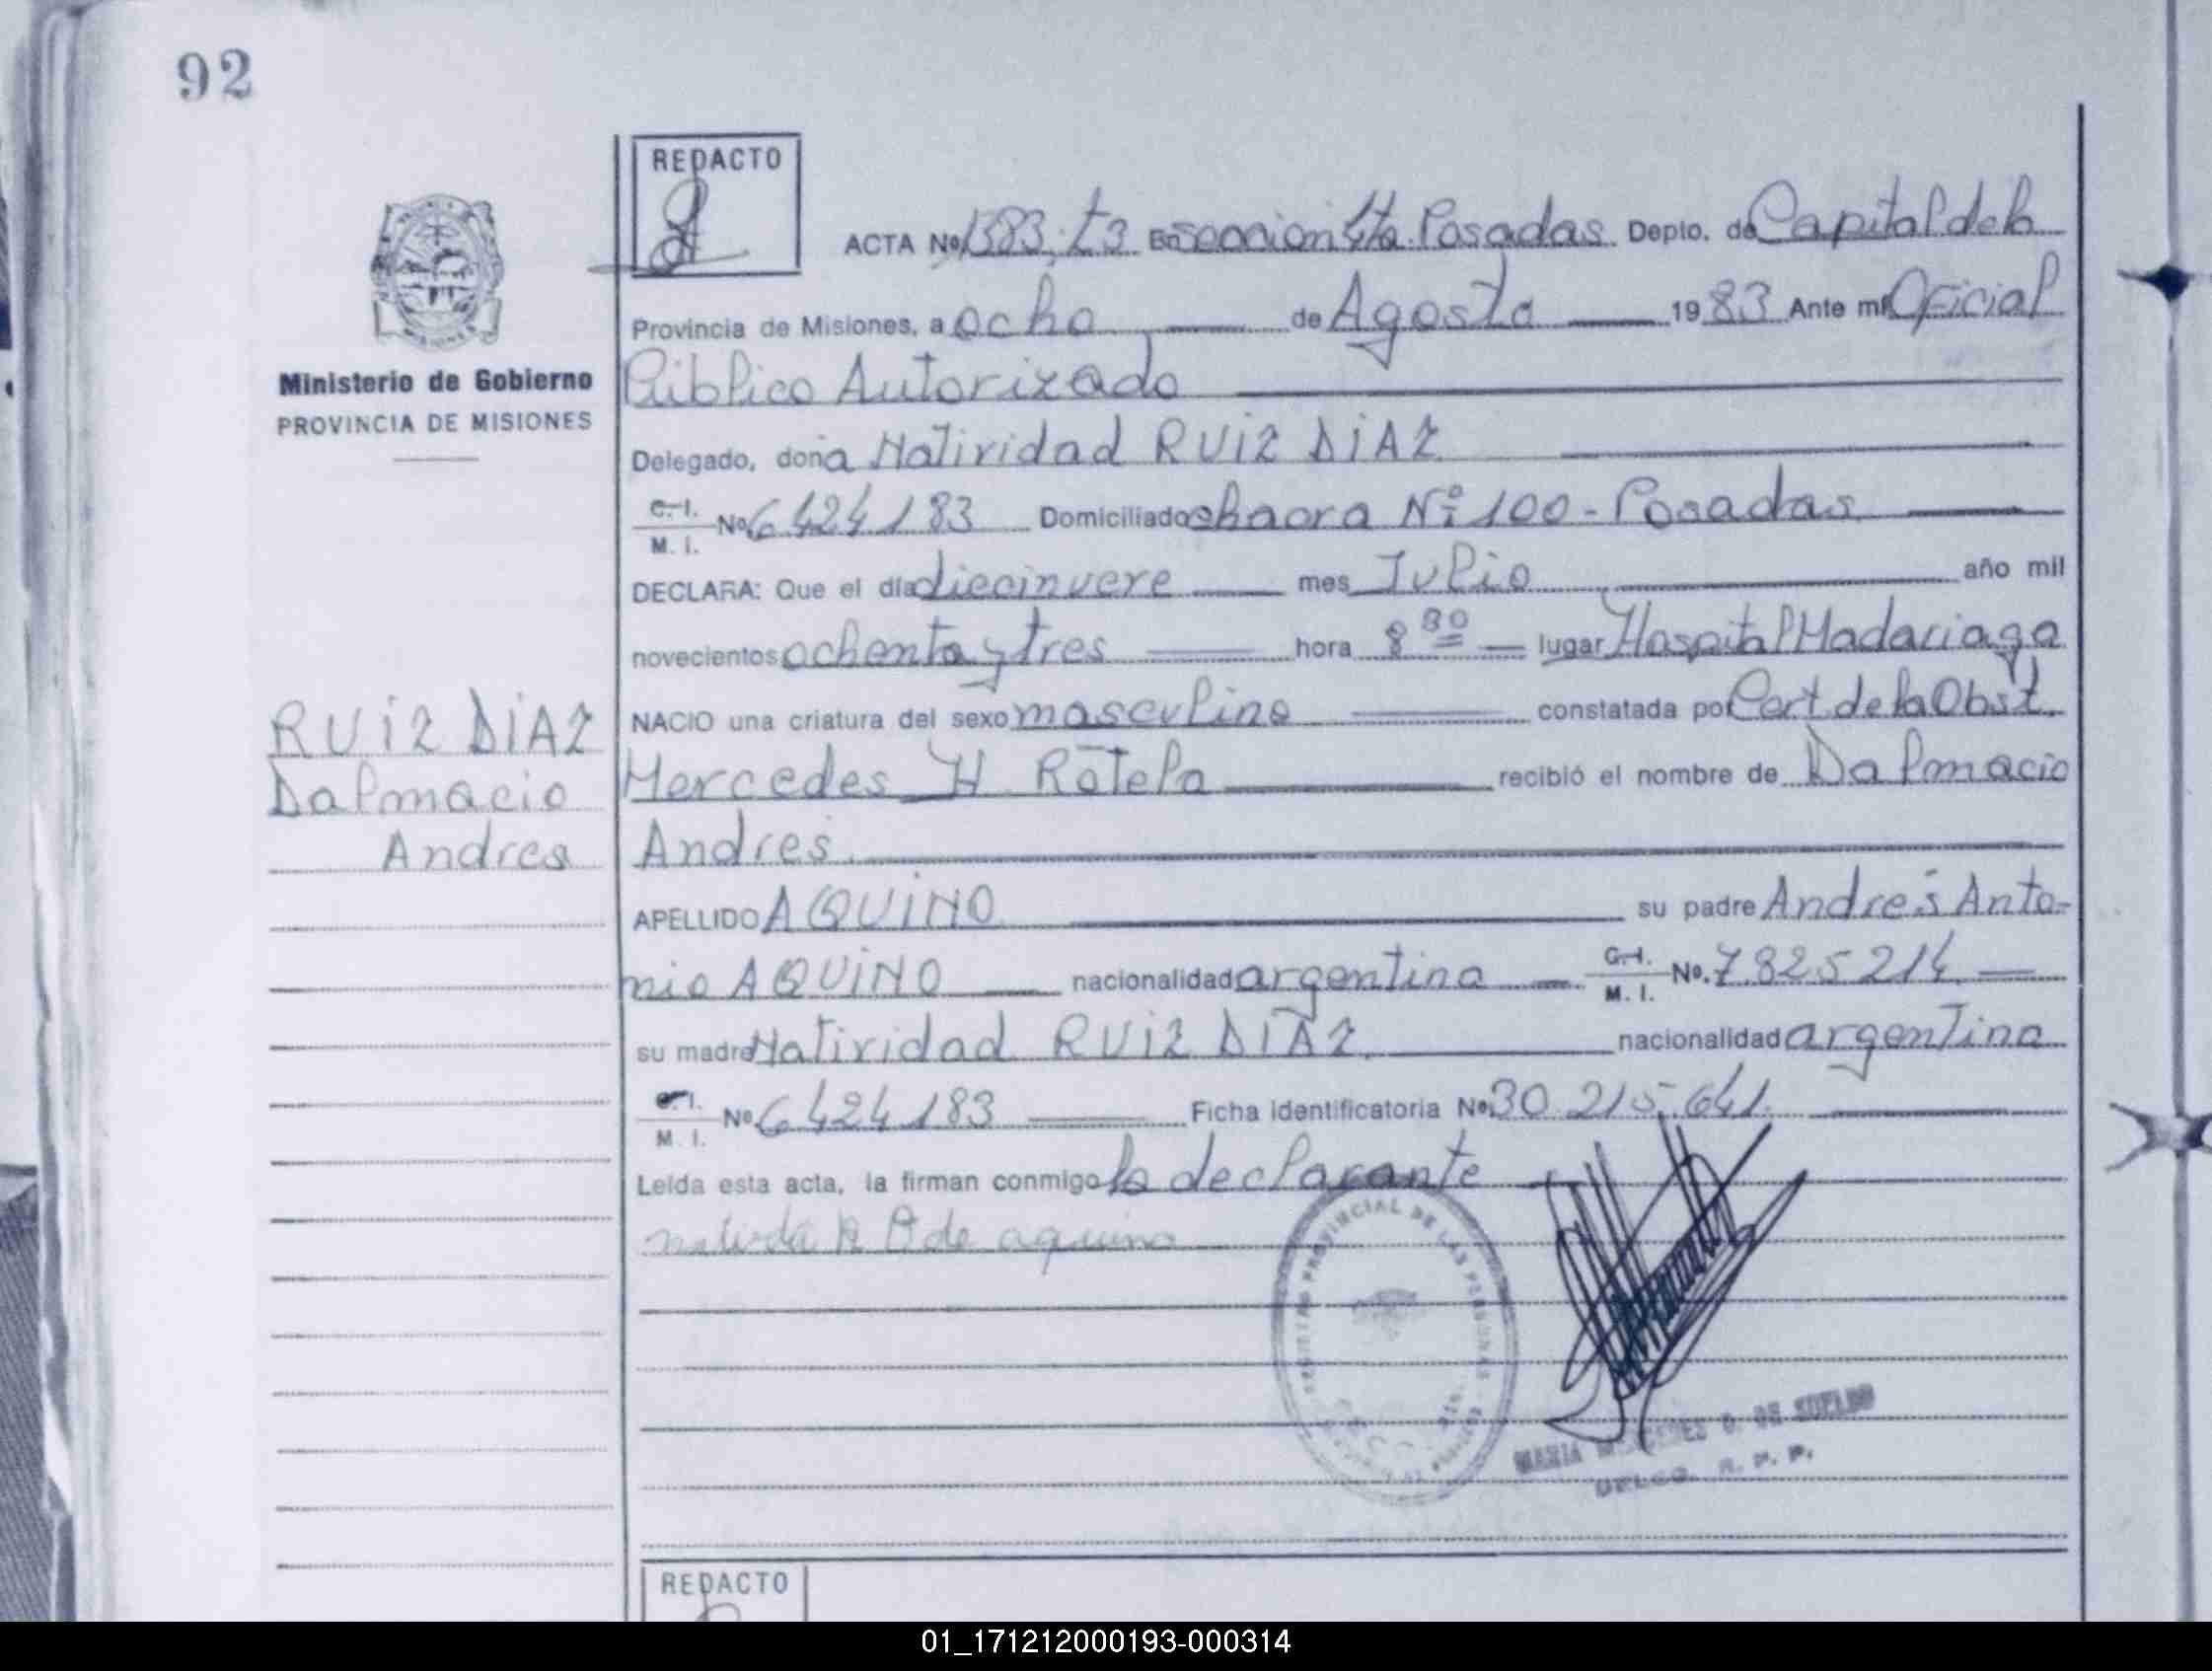 92
REDACTO
ACTA Nº 1383 t3 En Seccion 4ta. Posadas Depto. de Capital de la
Provincia de Misiones, a ocho de Agosto 1983 Ante mí Oficial
Público Autorizado
Ministerio de Gobierno
PROVINCIA DE MISIONES
Delegado, doña Natividad RUiZ DiAZ
C. I.
M. I. Nº 6424183 Domiciliado chacra Nº 100 - Posadas
DECLARA: Que el día diecinueve mes Julio año mil
novecientos ochenta y tres hora 8 30 lugar Hospital Madariaga
NACIO una criatura del sexo masculino constatada por Cert. de la Obst.
RUiZ DiAZ
Dalmacio
Andres
Mercedes H. Rotela recibió el nombre de Dalmacio
Andrés
APELLIDO AQUiNO su padre Andrés Anto-
nio AQUiNO nacionalidad argentina C. I.
M. I. Nº. 7825214
su madre Natividad RUiZ DIAZ nacionalidad argentina
C. I.
M. I. Nº 6424183 Ficha identificatoria Nº 30.215.641
Leída esta acta, la firman conmigo la declarante
de aquino
PROVINCIAL DE LAS PERSONAS
MARIA MERCEDES D. DE SUELDO
DELEG. R. P. P.
REDACTO
01_171212000193-000314